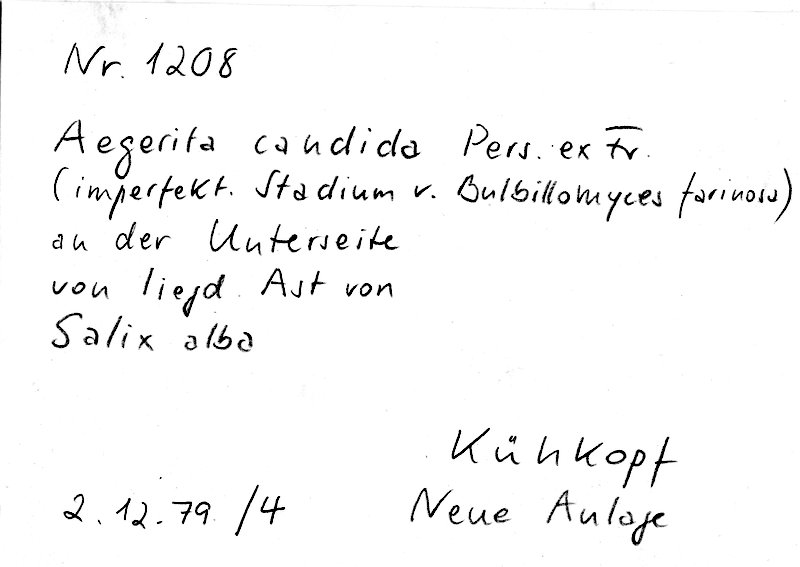 Nr. 1208
Aegerita candida Pers. ex Fr.
(imperfekt. Stadium v. Bulbillomyces farinosus)
an der Unterseite
von liegd. Ast von
Salix alba
Kühkopf
2.12.79 /4 Neue Anlage